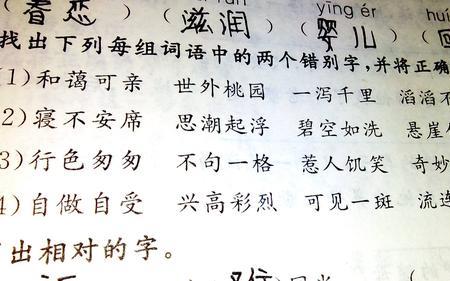 yīng ér huí
(眷恋) (滋润) (婴儿) (
找出下列每组词语中的两个错别字,并将正确
(1)和蔼可亲 世外桃园 一泻千里 滔滔不
2)寝不安席 思潮起浮 碧空如洗 悬崖
3)行色匆匆 不句一格 惹人饥笑 奇妙
4)自做自受 兴高彩烈 可见一斑 流连
出相对的字。